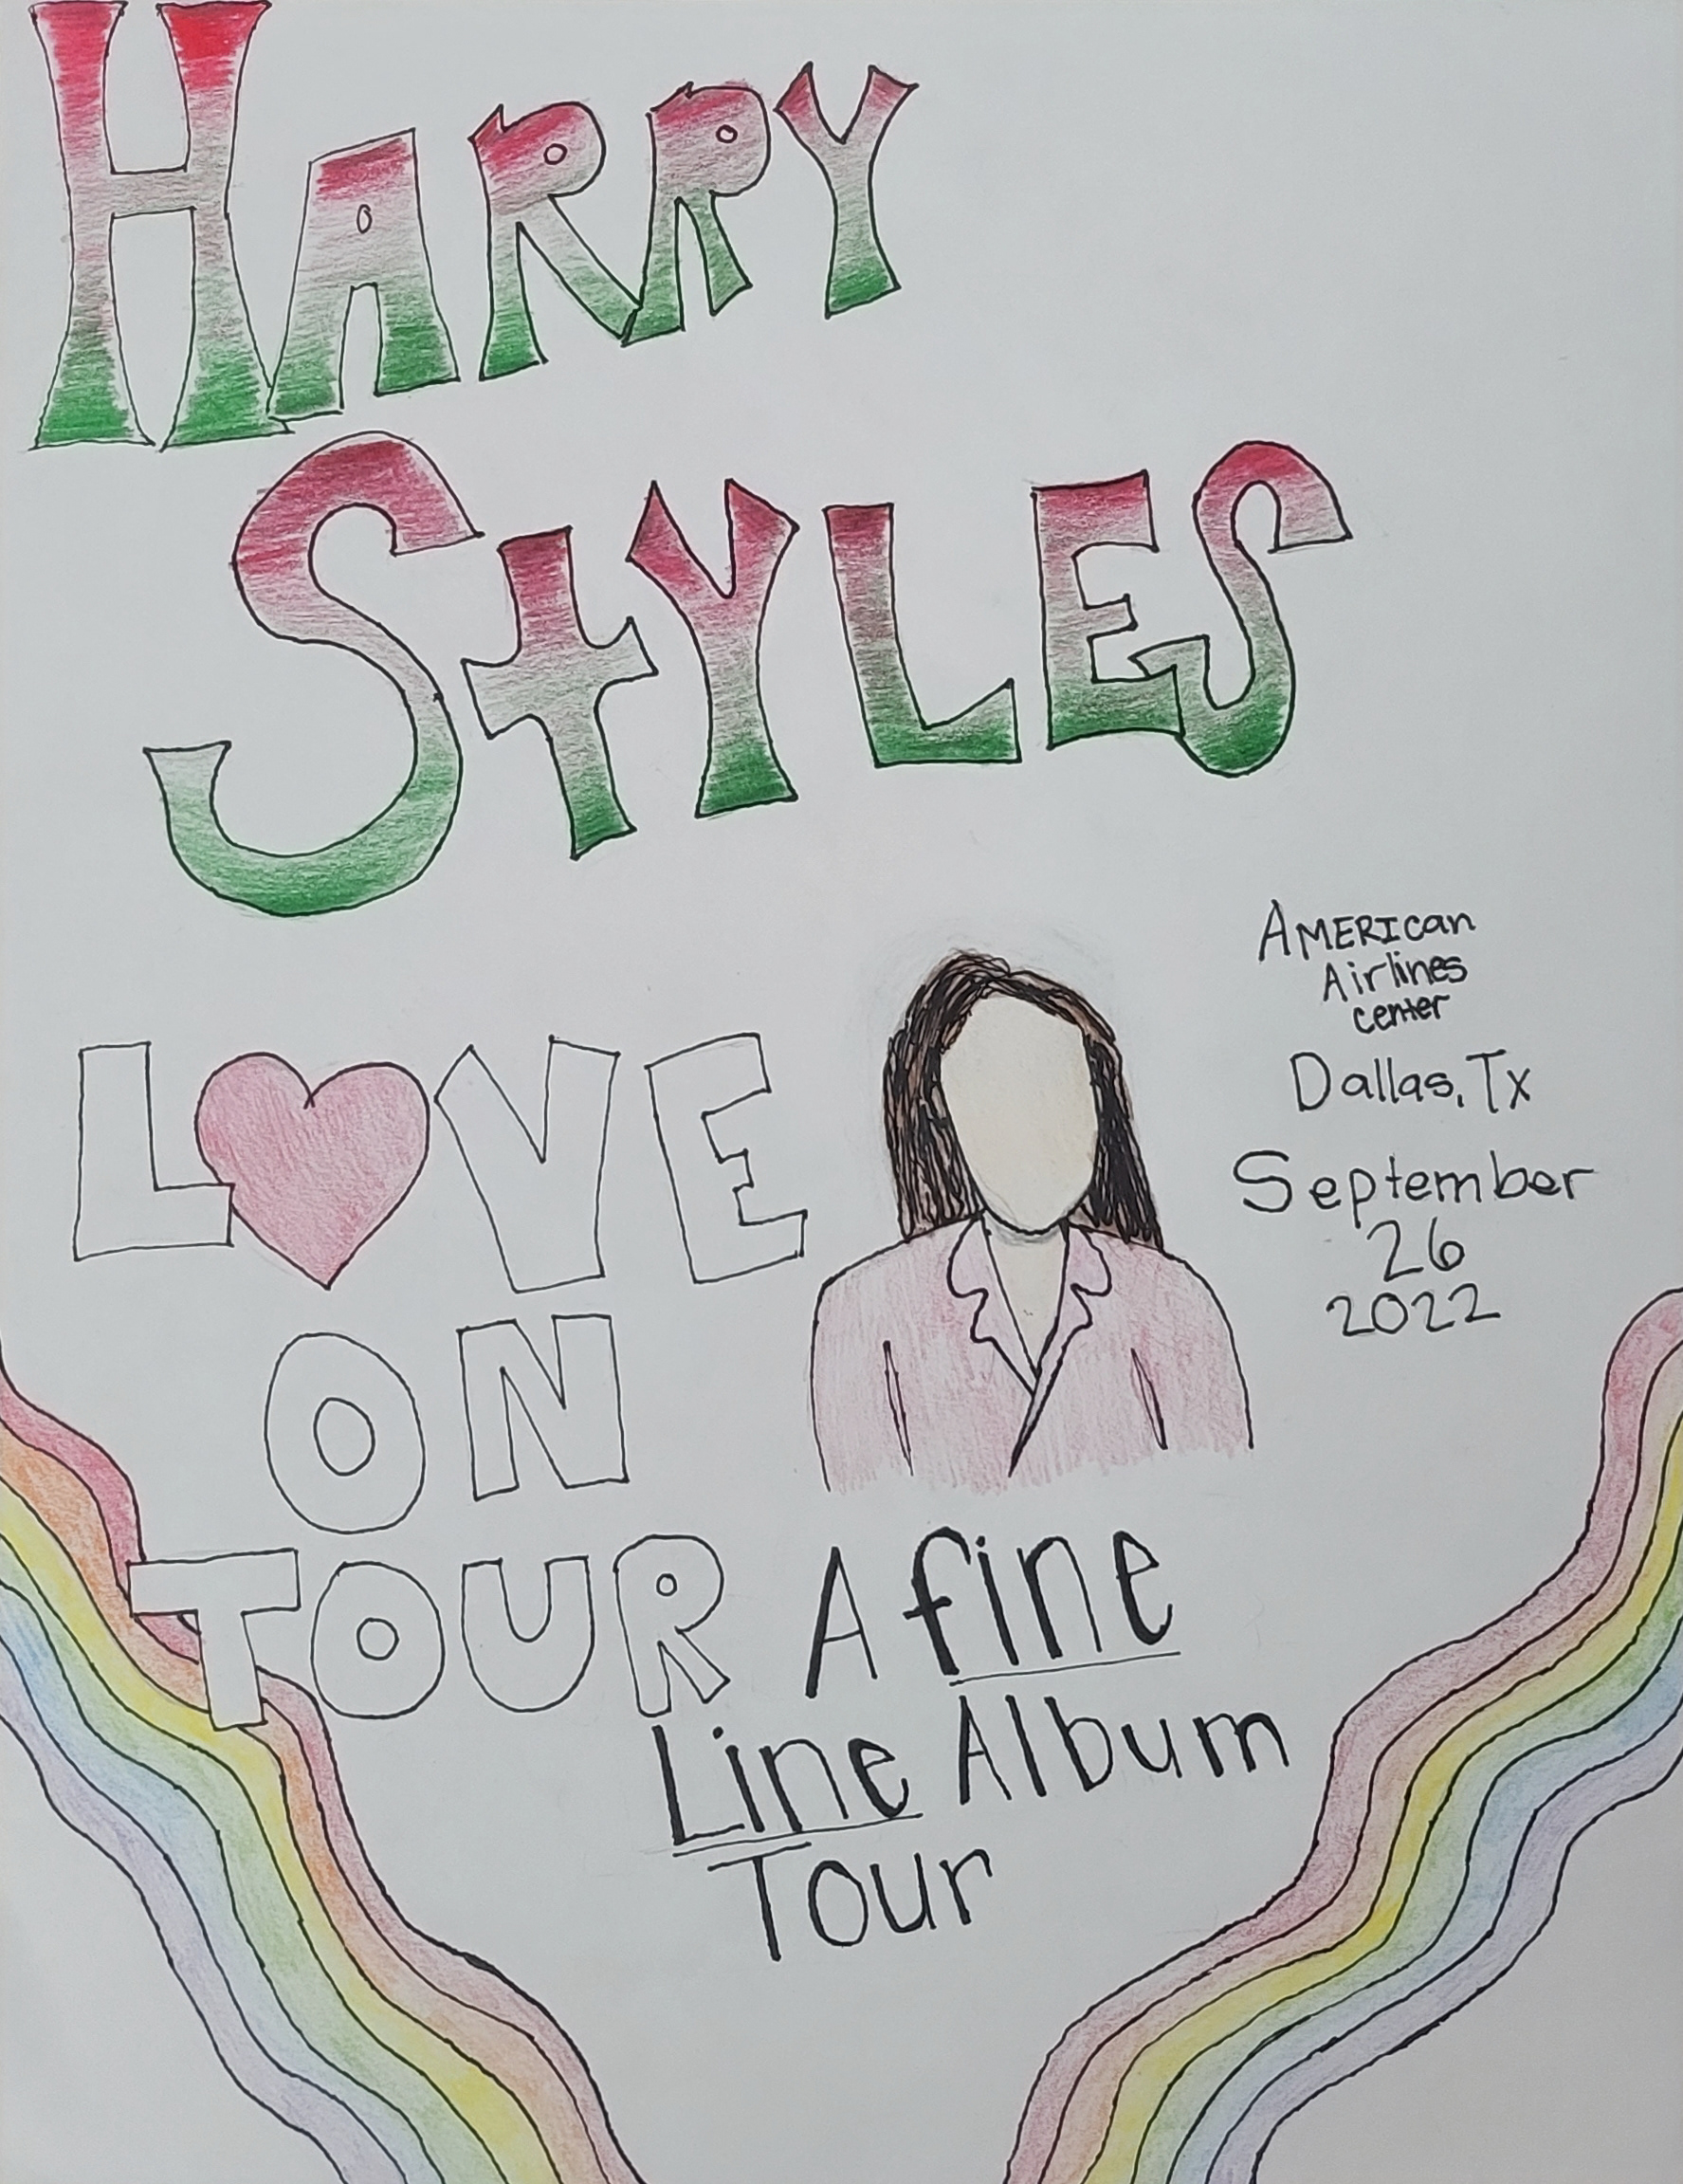 HARRY
STYLES
AMERIcan
Airlines
center
Dallas, Tx
September
26
2022
L♥VE
ON
TOUR
A fine
Line Album
Tour